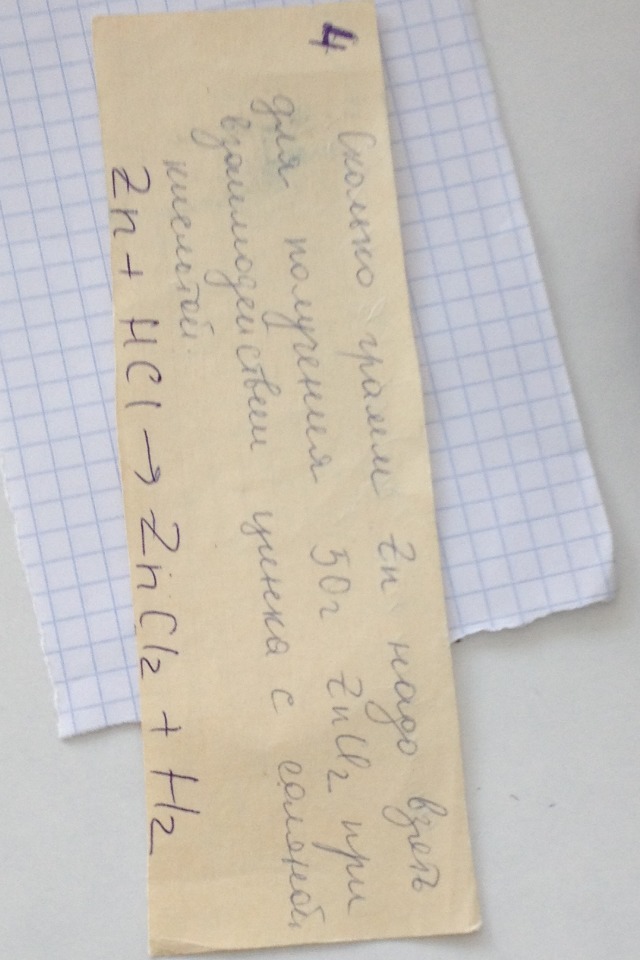 4
Сколько грамм Zn надо взять
для получения 50г ZnCl2 при
взаимодействии цинка с соляной
кислотой.
Zn + HCl → ZnCl2 + H2